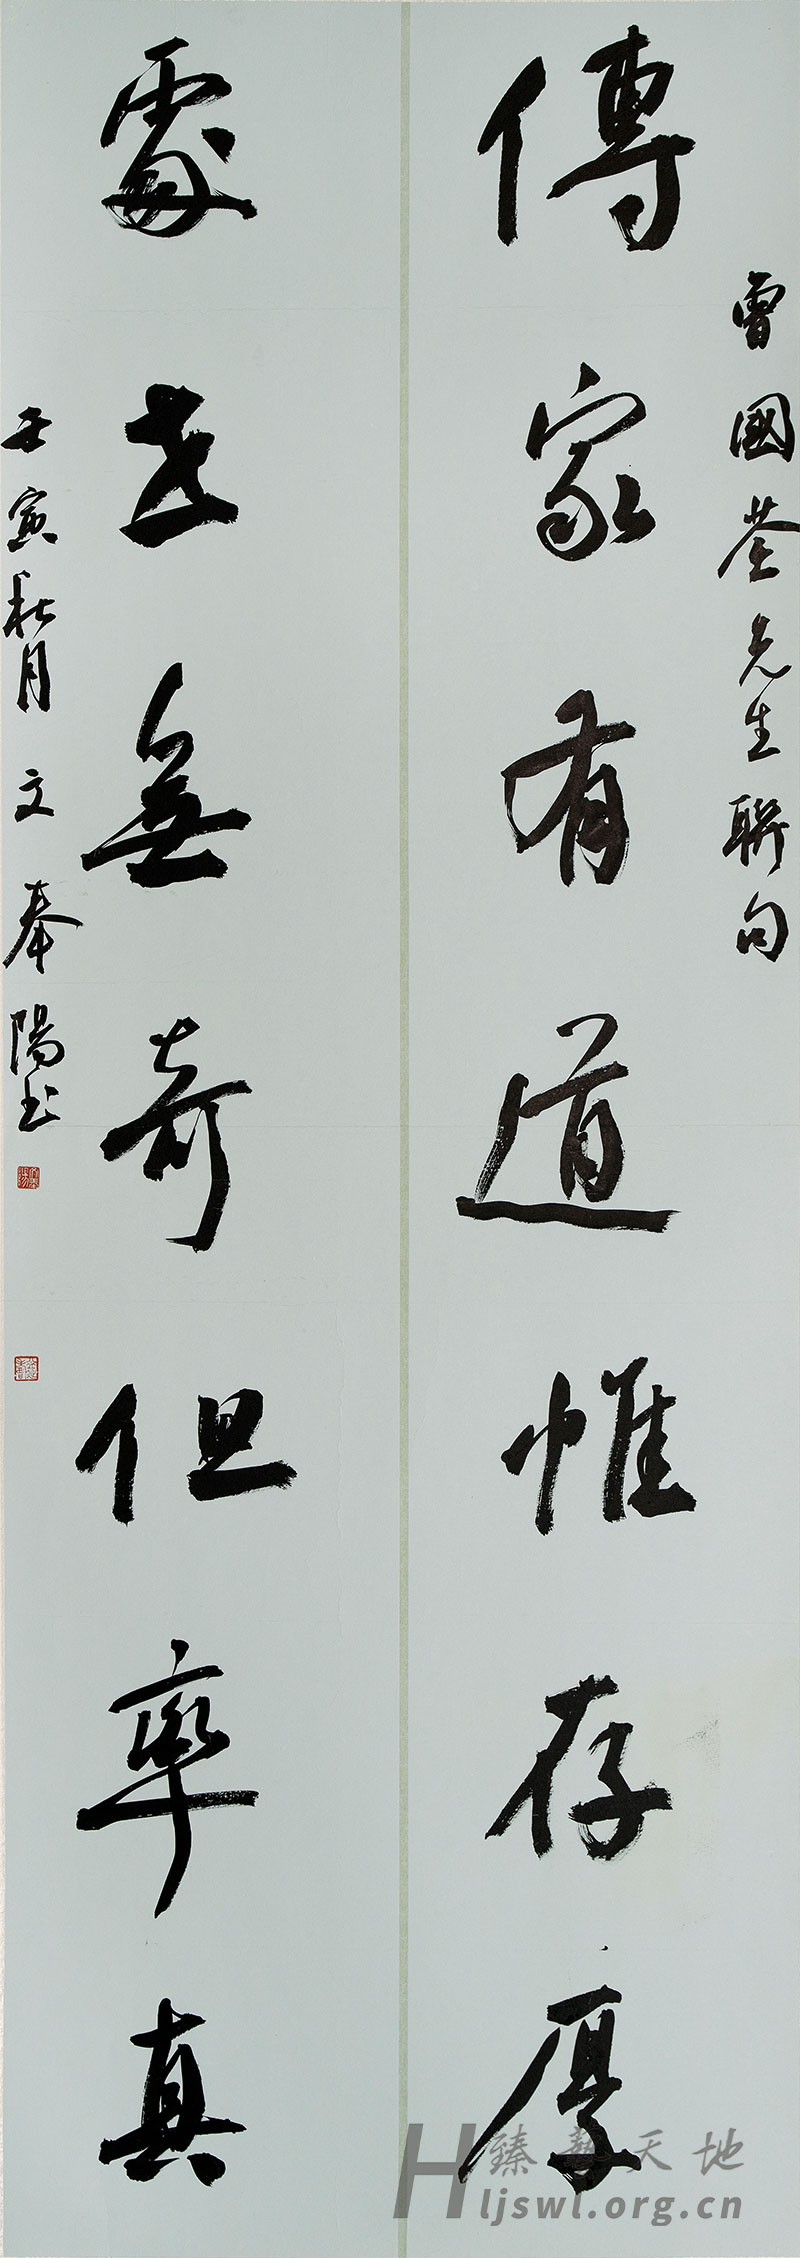 曾國荃先生聯句
傳家有道惟存厚
處世無奇但率真
壬寅秋月文奉陽書
臻藝天地
Hljswl.org.cn